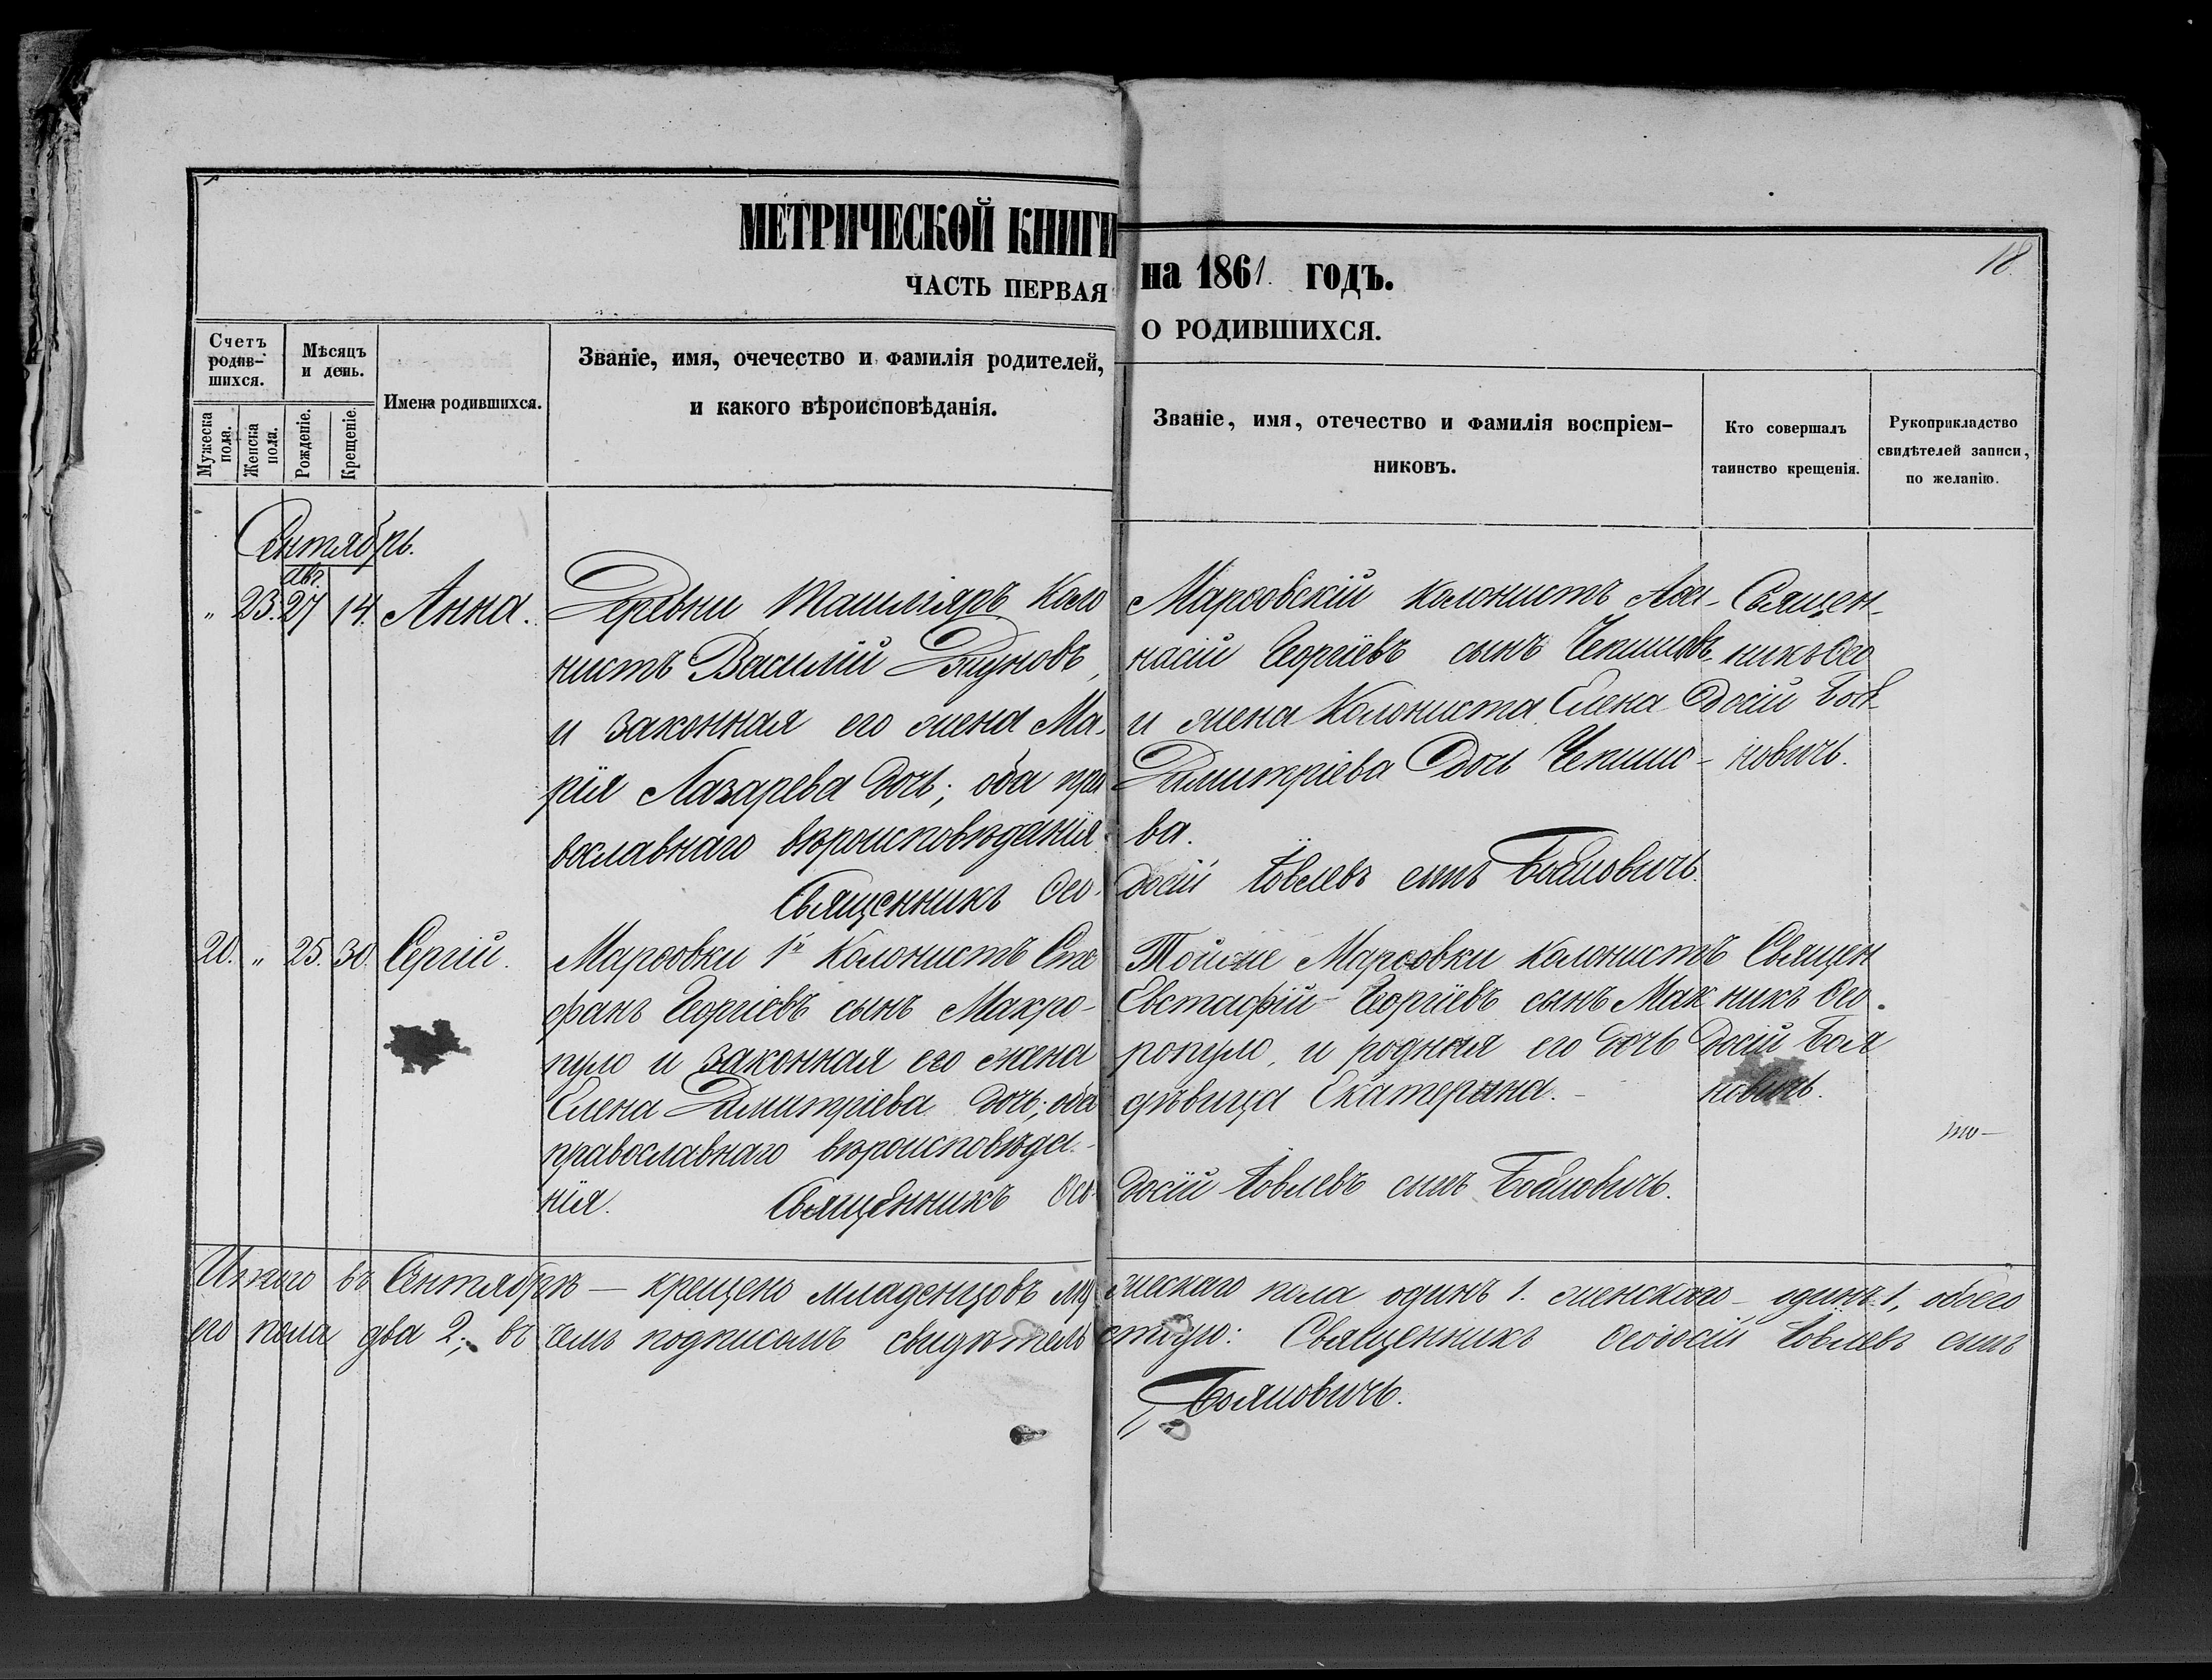 МЕТРИЧЕСКОЙ КНИГИ
на 1861. годъ.
18
ЧАСТЬ ПЕРВАЯ
О РОДИВШИХСЯ.
Счетъ родив-
шихся.
Мѣсяцъ
и день.
Имена родившихся.
Званіе, имя, очечество и фамилія родителей,
и какого вѣроисповѣданія.
Званіе, имя, отечество и фамилія воспріем-
никовъ.
Кто совершалъ
таинство крещенія.
Рукоприкладство
свидѣтелей записи,
по желанію.
Мужеска
пола.
Женска
пола.
Рожденіе.
Крещеніе.
Сентябрь.
Авг.
" 23. 27 14. Анна. Деревни Колo
нистъ Василій
и законная его жена Ма-
рія Лазарева дочь; оба пра
вославнаго вѣроисповѣданія.
Священникъ Ѳео-
Марѳовскій колонистъ Аѳа-
насій Георгіевъ сынъ
и жена Колониста Елена
Димитріева дочь
ва.
досій Іовлевъ сынъ Бояновичъ.
Священ-
никъ Ѳео
досій Боя
новичъ.
20. " 25. 30. Сергій. Марѳовки 1й Колонистъ Сте
фанъ Георгіевъ сынъ Макро-
пуло и законная его жена
Елена Димитріева дочь; оба
православнаго вѣроисповѣда-
нія. Священникъ Ѳео-
Тойже Марѳовки колонистъ
Евстафій Георгіевъ сынъ Мак
ропуло, и родная его дочь
дѣвица Екатерина.
досій Іовлевъ сынъ Бояновичъ.
Священ
никъ Ѳео-
досій Боя
новичъ.
Итого въ Сентябрѣ — крещено младенцовъ му жескаго пола одинъ 1. женскаго - одинъ 1, обоего
его пола два 2; въ чемъ подписомъ свидѣтель ствую: Священникъ Ѳеодосій Іовлевъ сынъ
Бояновичъ.